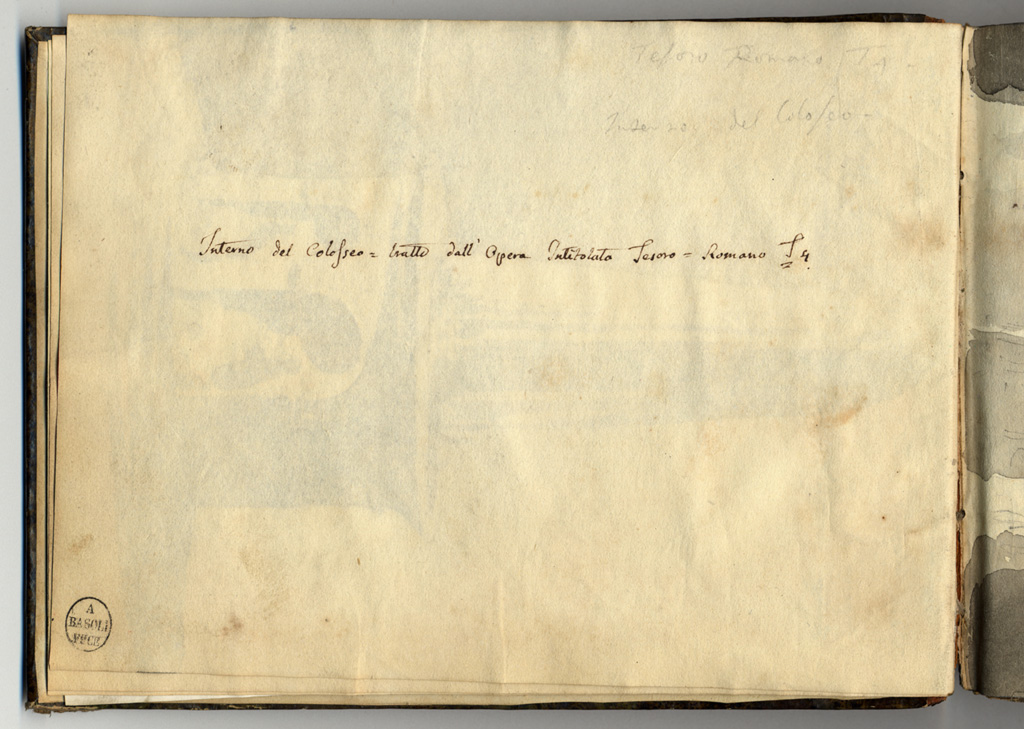 Tesoro Romano T 4
Interno del Colosseo -
Interno del Colosseo = tratto dall' Opera Intitolata Tesoro = Romano T 4.
A
BASOLI
FECE